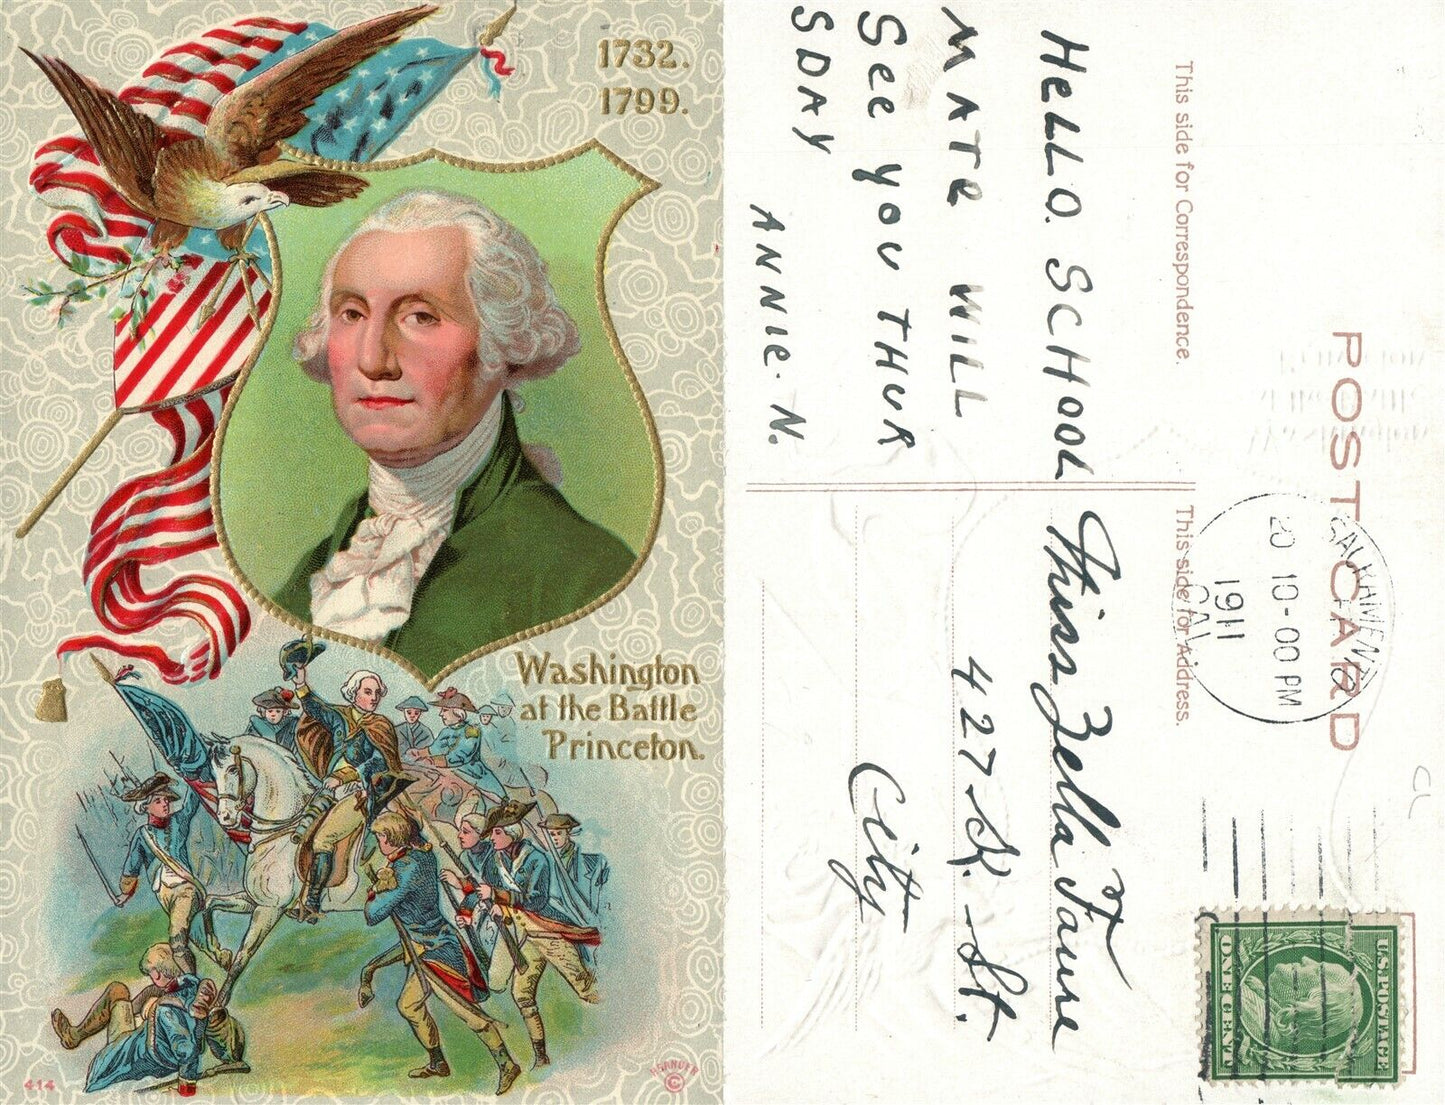 1732.
1799.
Washington
at the Battle
Princeton.
414
©
POST CARD
This side for Correspondence.
This side for Address.
HeLLO. SCHOOL
MATe WILL
See YOU THUR
SDAY
ANNIe. N.
Miss Zella Faure
427 K. St.
City
SACRAMENTO
20 10-00 PM
1911
CAL.
U.S. POSTAGE
ONE CENT
CL